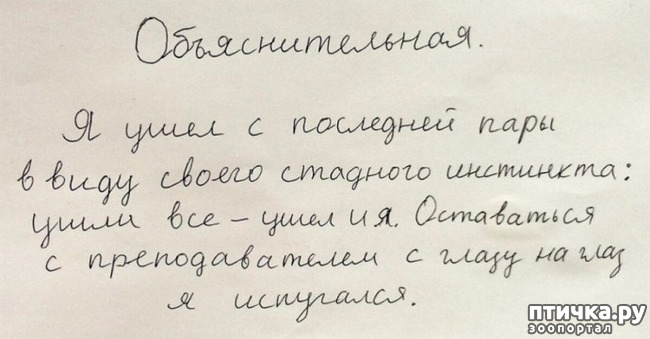 Объяснительная.
Я ушел с последней пары
в виду своего стадного инстинкта:
ушли все – ушел и я. Оставаться
с преподавателем с глазу на глаз
я испугался.
птичка.ру
зоопортал